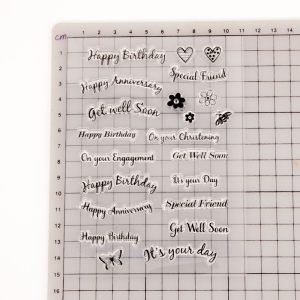 cm 1 2 3 4 5 6 7 8 9 10 11
1
Happy Birthday
2
Special Friend
3
Happy Anniversary
4
Get well Soon
5
6
Happy Birthday On your Christening
7
8
On your Engagement Get Well Soon
9
10
Happy Birthday It's your Day
11
Happy Anniversary Special Friend
12
13
Happy Birthday Get Well Soon
14
It's your day
15
16